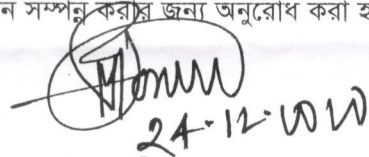 ন সম্পন্ন করার জন্য অনুরোধ করা হ
24-12-2020